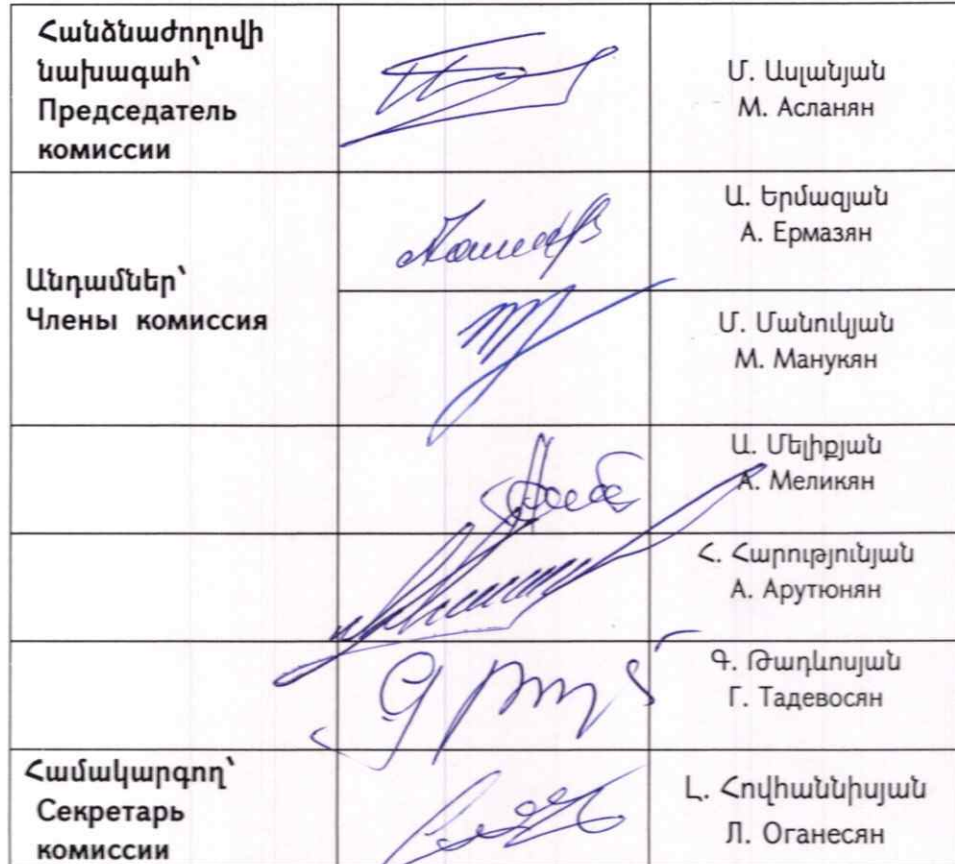 Հանձնաժողովի
նախագահ՝
Председатель
комиссии
Մ. Ասլանյան
М. Асланян
Անդամներ՝
Члены комиссия
Ա. Երմազյան
А. Ермазян
Մ. Մանուկյան
М. Манукян
Ա. Մելիքյան
А. Меликян
Հ. Հարությունյան
А. Арутюнян
Գ. Թադևոսյան
Г. Тадевосян
Համակարգող՝
Секретарь
комиссии
Լ. Հովհաննիսյան
Л. Оганесян